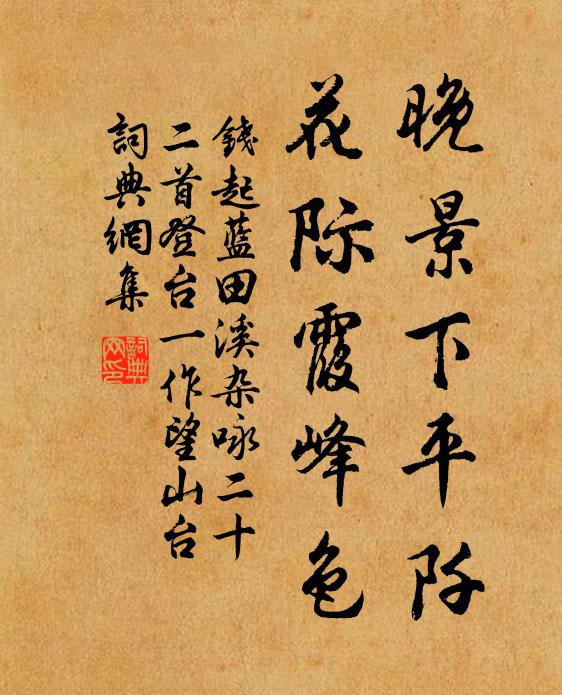 晚景下平阡
花际霞峰色
錢起藍田溪杂咏二十
二首登台一作望山台
詞典網集
詞典網印